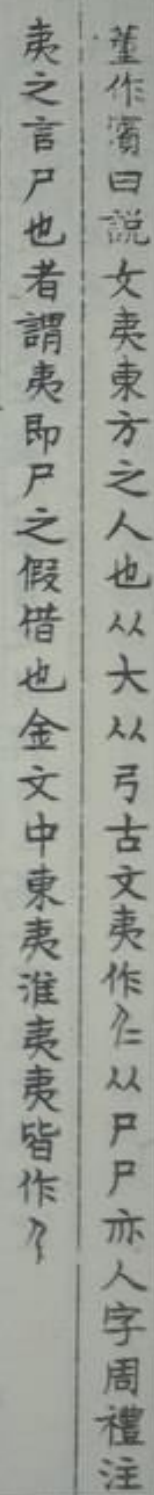 董作賓曰說文夷東方之人也从大从弓古文夷作𡰥从尸尸亦人字周禮注
夷之言尸也者謂夷即尸之假借也金文中東夷淮夷夷皆作